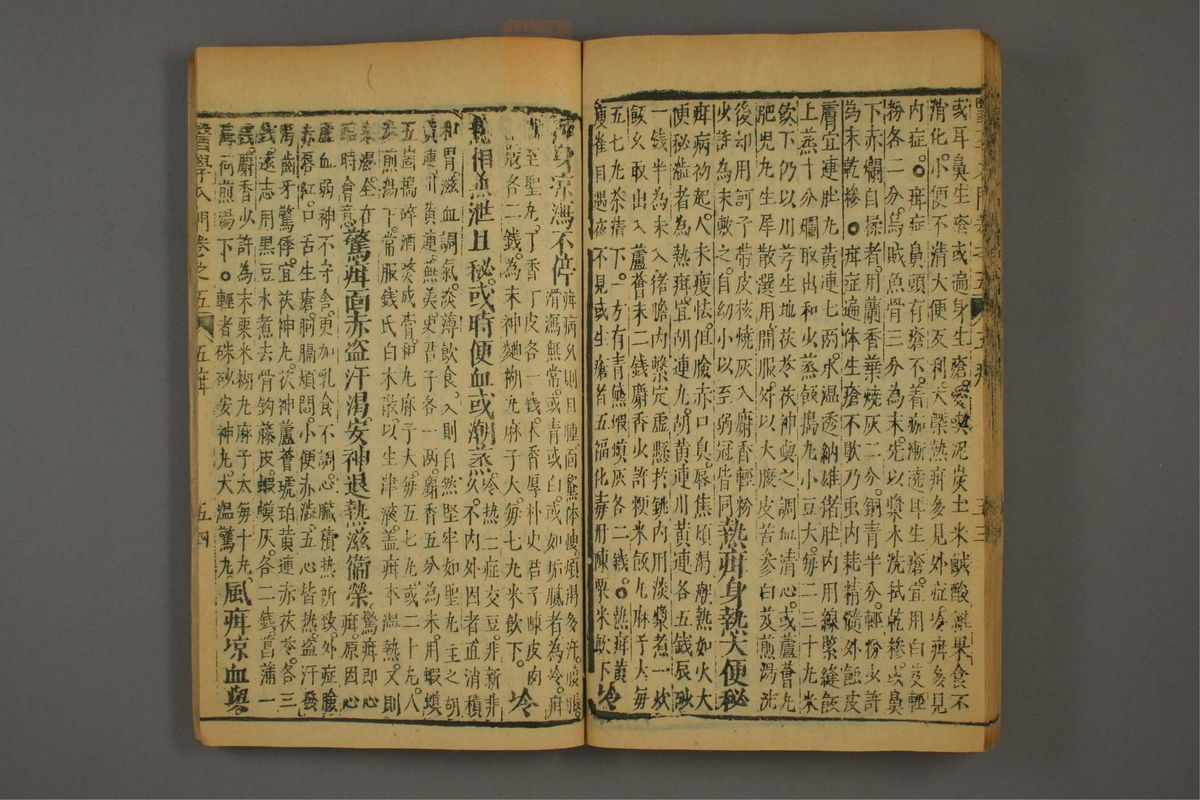 或耳鼻生瘡或漏身生瘡愛吃泥炭土米鹹酸雜果食不
消化小便不清大便反利大槩熱疳多見外症冷疳多見
内症。疳症鼻頭有瘡不著痂漸遶耳生瘡宜用白芨輕
粉各一分烏賊魚骨三分為末先以漿水洗拭乾糝或鼻
下赤爛自揉者用蘭香葉燒灰二分銅青半分輕粉少許
為末乾糝。疳症遍体生瘡不歇乃虫内耗精髓外蝕皮
膚宜連肚丸黃連七兩水温透納雄猪肚内用線緊縫飯
上蒸十分爛取出和少蒸飯搗丸小豆大每二三十丸米
飲下仍以川芎生地茯苓茯神與之調血清心或蘆薈丸
肥児丸生犀散選用間服外以大腹皮苦参白芨煎湯洗
後却用訶子帶皮核燒灰入麝香輕粉
少許為末敷之自幼小以至弱冠皆同熱疳身熱大便秘
疳病初起人未瘦怯但臉赤口臭唇焦煩渴潮熱如火大
便秘澁者為熱疳宜胡連丸胡黃連川黃連各五錢辰砂
一錢半為末入猪膽内繫定虚懸於銚内用淡漿煮一炊
飯久取出入蘆薈末二錢麝香少許粳米飯丸麻子大每
五七丸茶清下。一方有青黛蝦蟆灰各二錢。熱疳黃
瘦雀目遇夜不見或生瘡者五福化毒丹陳粟米飲下冷
疳身凉瀉不停疳病久則目腫面黧体瘦煩渴多汗腹脹
滑瀉無常或青或白或如垢膩者為冷疳
宜至聖丸丁香丁皮各一錢木香厚朴史君子陳皮肉
荳蔲各二錢為末神麯糊丸麻子大每七丸米飲下。冷
熱相無泄且秘或時便血或潮蒸冷熱二症交互非新非
久不内外因者直消積
和胃滋血調氣淡薄飲食入則自然堅牢如聖丸主之胡
黃連川黃連蕪荑史君子各一兩麝香五分為末用蝦蟆
五箇搗碎酒熬成膏和丸麻子大每五七丸或二十丸八
参煎湯下常服錢氏白木散以生津液盖疳本温熱又則
臨時會意驚疳面赤盗汗渴安神退熱滋衛榮驚疳即心
疳原因心
虛血弱神不守舍更加乳食不調心臟積熱所致外症臉
赤唇紅口舌生瘡胸膈煩悶小便赤澁五心皆熱盗汗發
渴齒牙驚悸宜茯神丸茯神蘆薈琥珀黃連赤茯苓各三
錢遠志用黒豆水煮去骨鈎藤皮蝦蟆灰各二錢菖蒲一
錢麝香少許為末粟米糊丸麻子大每十丸
薄荷煎湯下。輕者硃砂安神丸大温驚丸風疳凉血與
醫學入門卷之五
五疳
五四